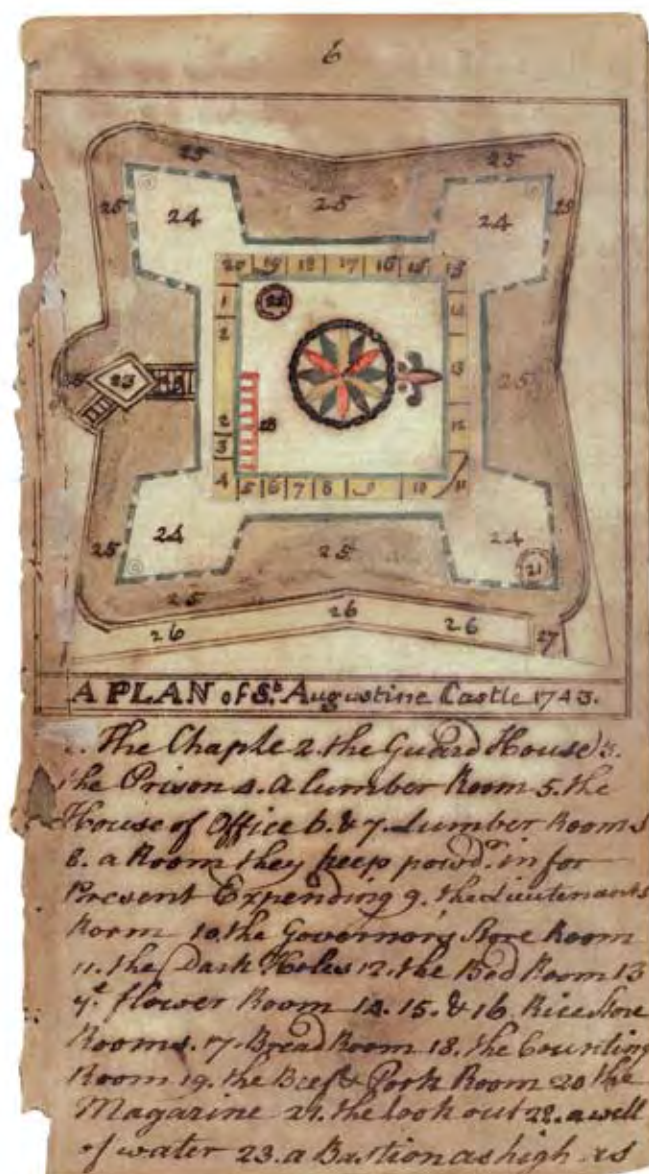 6
25 25
25 25 25
24 24
20 19 18 17 16 15 13
1
2
23 25
13
2 12
3
4 5 6 7 8 9 10 11
24 24
25 25 21
25
26 26 26 27
A PLAN of St. Augustine Castle 1743.
The Chaple 2. the Guard House 3.
the Prison 4. A lumber Room 5. the
House of Office 6. & 7. Lumber Rooms
8. a Room they keep powdr. in for
Present Expending 9. the Lieutenants
Room 10. the Governors Store Room
11. the Dark Holes 12. the Bed Room 13
ye. flower Room 14. 15. & 16. Rice Store
Rooms. 17. Bread Room 18. the Counting
Room 19. the Beef & Pork Room 20 the
Magazine 21. the look out 22. a well
of water 23. a Bastion as high as